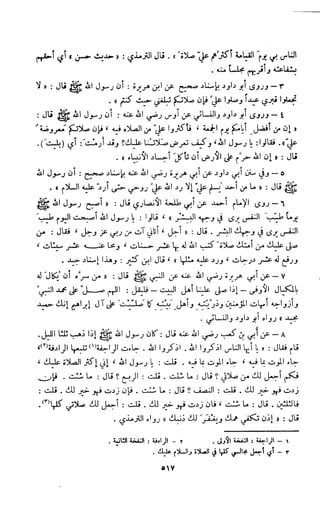 الناس بي يوم القيامة أكثرهم علي صلاة » . قال الترمذي : « حديث حسن » أي أحقهم
بشفاعته وأقربهم مجلساً منه .
٣ – وروى أبو داود بإسناد صحيح عن أبي هريرة : أن رسول الله ﷺ قال : « لا
تجعلوا قبري عيداً وصلوا علي فإن صلاتكم تبلغني حيث كنتم » .
٤ – وروى أبو داود والنسائي عن أوس رضي الله عنه : أن رسول الله ﷺ قال :
« إن من أفضل أيامكم يوم الجمعة ، فأكثروا علي من الصلاة فيه ، فإن صلاتكم معروضة
علي » . فقالوا : يا رسول الله ، وكيف تعرض صلاتنا عليك وقد أرمت : أي ( بليت ) .
قال : « إن الله حرم على الأرض أن تأكل أجساد الأنبياء » .
٥ – وفي سنن أبي داود عن أبي هريرة رضي الله عنه بإسناد صحيح : أن رسول الله
ﷺ قال : « ما من أحد يسلم علي إلا رد الله علي روحي حتى أرد عليه السلام » .
٦ – وروى الإمام أحمد عن أبي طلحة الأنصاري قال : « أصبح رسول الله ﷺ
يوماً طيب النفس يرى في وجهه البشر ، قالوا : يا رسول الله أصبحت اليوم طيب
النفس يرى في وجهك البشر . قال : « أجل ، أتاني آت من ربي عز وجل ، فقال : من
صلى عليك من أمتك صلاة كتب الله له بها عشر حسنات ، ومحا عنه عشر سيئات ،
ورفع له عشر درجات ، ورد عليه مثلها » ، قال ابن كثير : وهذا إسناد جيد .
٧ – وعن أبي هريرة رضي الله عنه عن النبي ﷺ قال : « من سره أن يكتال له
بالمكيال الأوفى – إذا صلى علينا أهل البيت – فليقل : اللهم صل على محمد النبي
وأزواجه أمهات المؤمنين وذريته وأهل بيته كما صليت على آل إبراهيم إنك حميد
مجيد » رواه أبو داود والنسائي .
٨ – عن أبي بن كعب رضي الله عنه قال : كان رسول الله ﷺ إذا ذهب ثلثا الليل
قام فقال : « يا أيها الناس اذكروا الله . اذكروا الله . جاءت الراجفة(١) تتبعها الرادفة(٢)
جاء الموت بما فيه ، جاء الموت بما فيه . قلت : يا رسول الله ، إني أكثر الصلاة عليك ،
فكم أجعل لك من صلاتي ؟ قال : ما شئت . قلت : الربع ؟ قال : ما شئت . فإن
زدت فهو خير لك . قلت : النصف ؟ قال : ما شئت . فإن زدت فهو خير لك . قلت :
فالثلثين . قال : ما شئت ، فإن زدت فهو خير لك . قلت : أجعل لك صلاتي كلها(٣)
قال : « إذن تكفى همك ويغفر لك ذنبك » رواه الترمذي .
١ – الراجفة : النفخة الأولى . ٢ – الرادفة : النفخة الثانية .
٣ – أي أجعل مجالسي كلها في الصلاة والسلام عليك .
٥١٧